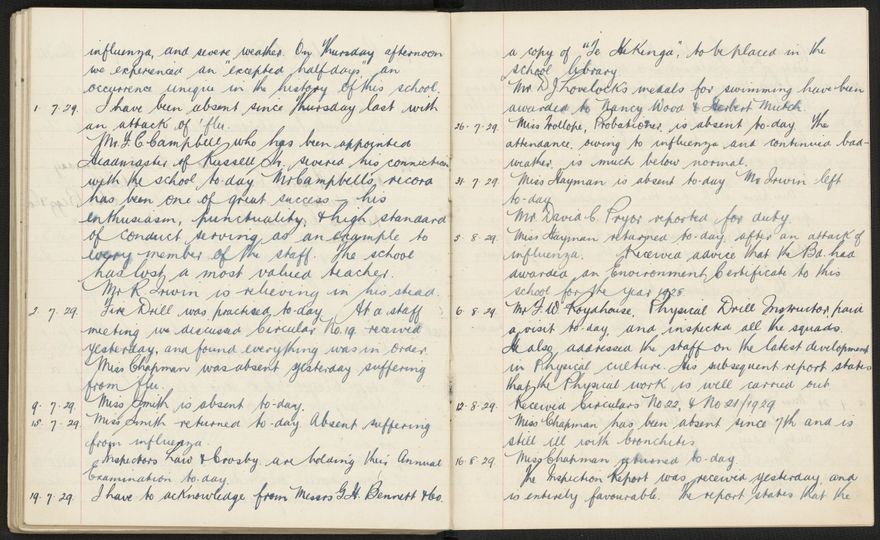 influenza, and severe weather. On Thursday afternoon
we experienced an "excepted half days" an
occurrence unique in the history of this school.
1. 7. 29. I have been absent since Thursday last with
an attack of 'flu.
Mr. F. C. Campbell, who has been appointed
Headmaster of Russell St., severed his connection
with the school to-day. Mr Campbell's record
has been one of great success – his
enthusiasm, punctuality, & high standard
of conduct serving as an example to
every member of the staff. The school
has lost a most valued teacher.
Mr R. Irwin is relieving in his stead.
2. 7. 29. Fire Drill was practised to-day. At a staff
meeting we discussed Circular No. 19 received
yesterday, and found everything was in order.
Miss Chapman was absent yesterday suffering
from flu.
9. 7. 29. Miss Smith is absent to-day.
15. 7. 29. Miss Smith returned to-day. Absent suffering
from influenza.
Inspectors Law & Crosby are holding their Annual
Examination to-day.
19. 7. 29. I have to acknowledge from Messrs G. H. Bennett & Co.
a copy of "Te Hekenga", to be placed in the
school library.
Mr. D. J. Lovelock's medals for swimming have been
awarded to Nancy Wood & Herbert Mutch.
26. 7. 29. Miss Trollope, Probationer, is absent to-day. The
attendance, owing to influenza and continued bad-
weather, is much below normal.
31. 7. 29. Miss Hayman is absent to-day. Mr Irwin left
to-day.
Mr. David C. Pryor reported for duty.
5. 8. 29. Miss Hayman returned to-day, after an attack of
influenza. Received advice that the Bd. had
awarded an Environment Certificate to this
school for the year 1928.
6. 8. 29. Mr F. W. Roydhouse, Physical Drill Instructor, paid
a visit to-day and inspected all the squads.
He also addressed the staff on the latest development
in Physical culture. His subsequent report states
that the Physical work is well carried out.
12. 8. 29. Received Circulars No 22, & No 21/1929
Miss Chapman has been absent since 7th and is
still ill with bronchitis.
16. 8. 29. Miss Chapman returned to-day.
The Inspection Report was received yesterday, and
is entirely favourable. The report states that the